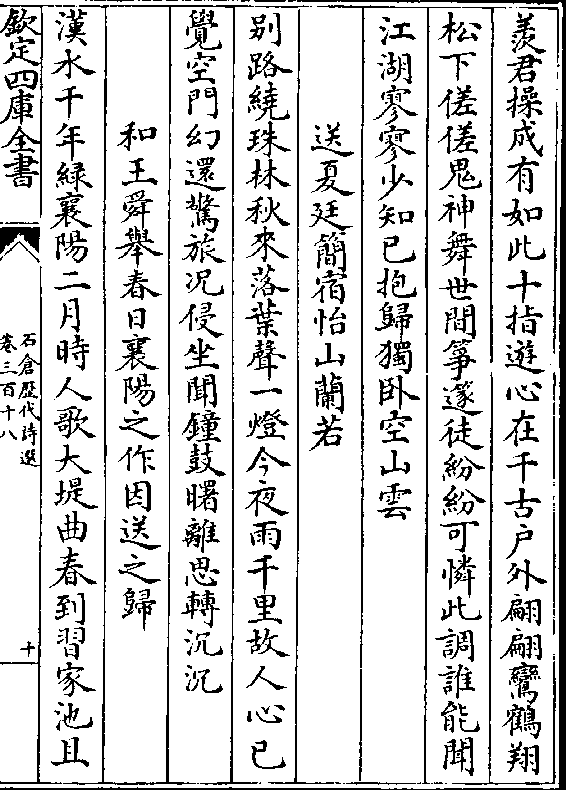 羨君操成有如此十指遊心在千古户外翩翩鸞鶴翔
松下傞傞鬼神舞世間箏篴徒紛紛可憐此調誰能聞
江湖寥寥少知己抱歸獨卧空山雲
送夏廷簡宿怡山蘭若
别路繞珠林秋來落葉聲一燈今夜雨千里故人心已
覺空門幻還驚旅况侵坐聞鐘鼓曙離思轉沉沉
和王舜舉春日襄陽之作因送之歸
漢水千年緑襄陽二月時人歌大堤曲春到習家池且
欽定四庫全書
石倉歴代詩選
卷三百十八
十